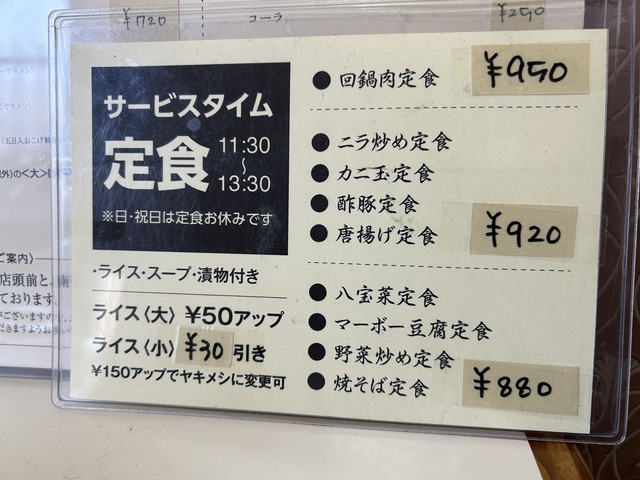 ¥720
コーラ
¥250
サービスタイム
定食
11:30
〜
13:30
※日・祝日は定食お休みです
・ライス・スープ・漬物付き
ライス〈大〉 ¥50アップ
ライス〈小〉 ¥30 引き
¥150アップでヤキメシに変更可
● 回鍋肉定食 ¥950
● ニラ炒め定食
● カニ玉定食
● 酢豚定食
● 唐揚げ定食 ¥920
● 八宝菜定食
● マーボー豆腐定食
● 野菜炒め定食
● 焼そば定食 ¥880
ご案内〉
店頭前と、南
ております。